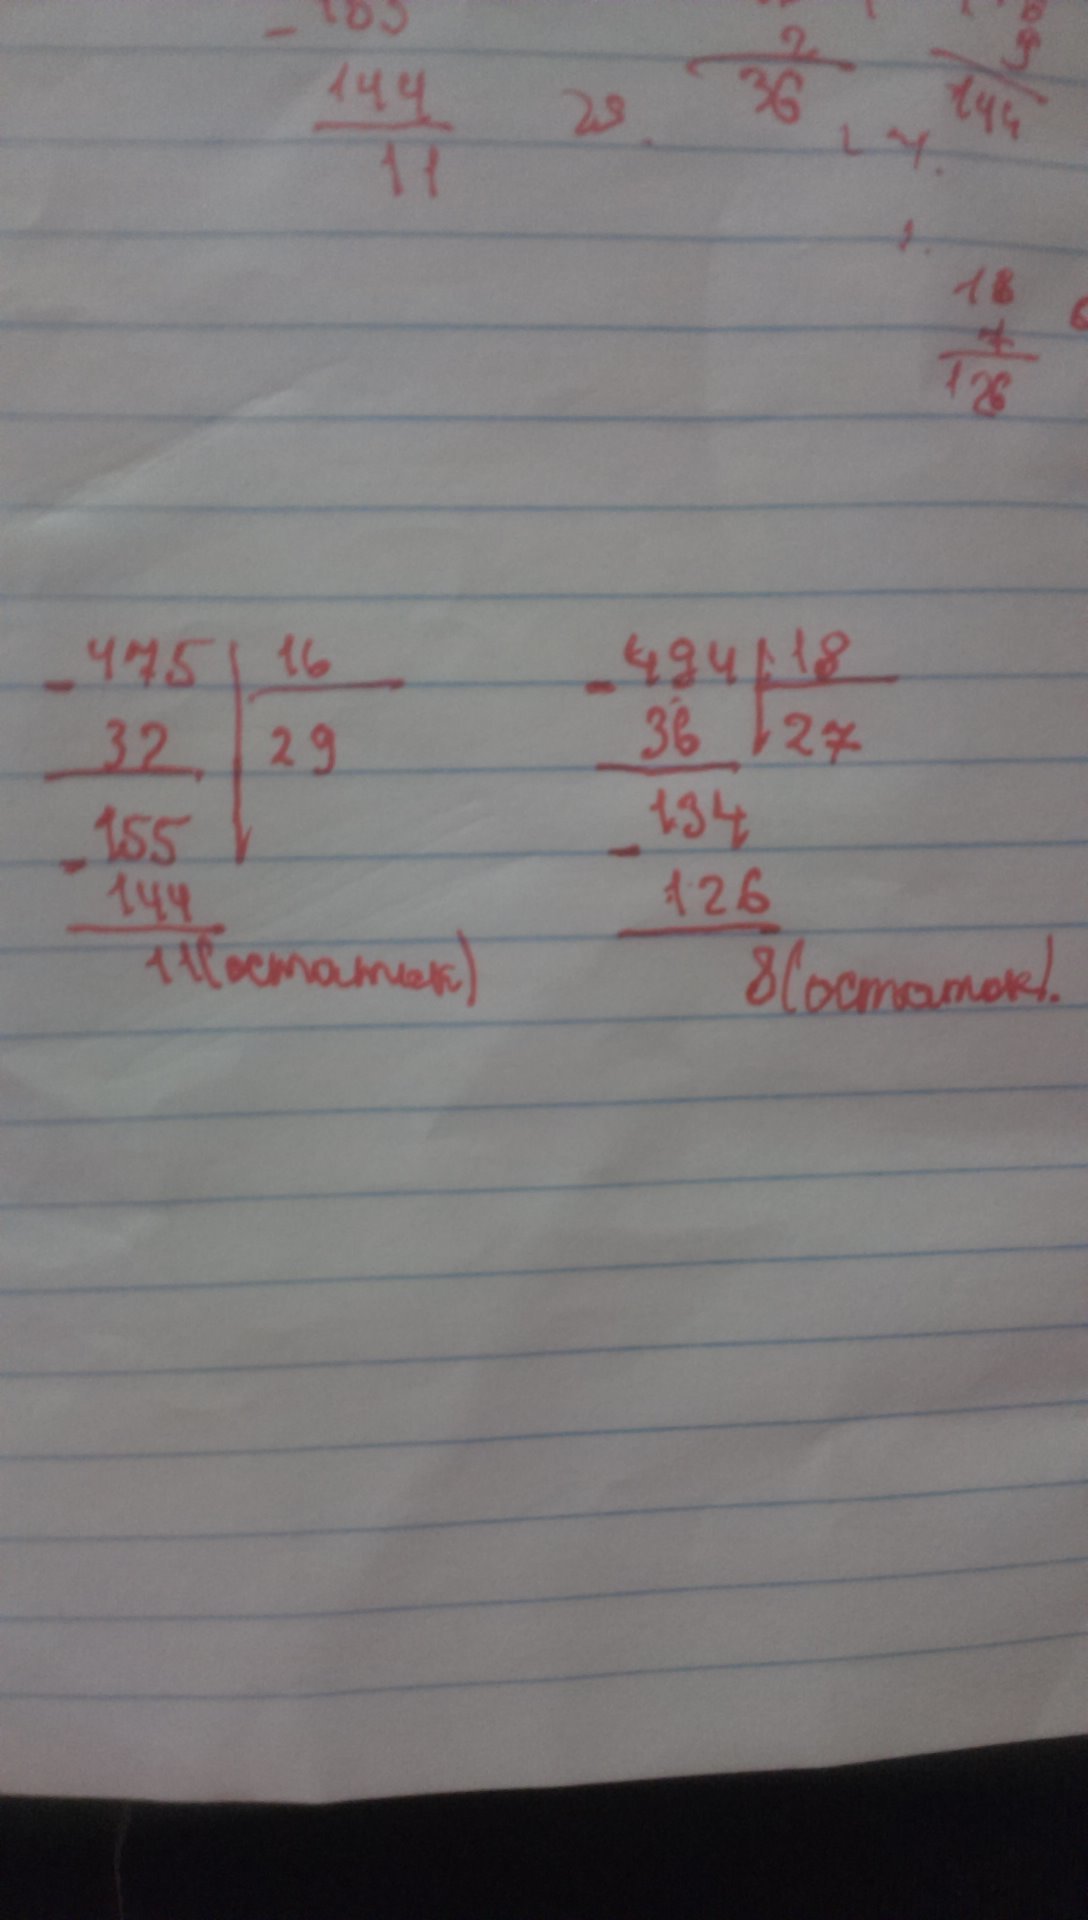 144
11
29.
2
36
144
18
7
126
- 475 | 16
32 | 29
- 155
144
11(остаток)
- 494 | 18
36 | 27
- 134
126
8(остаток).